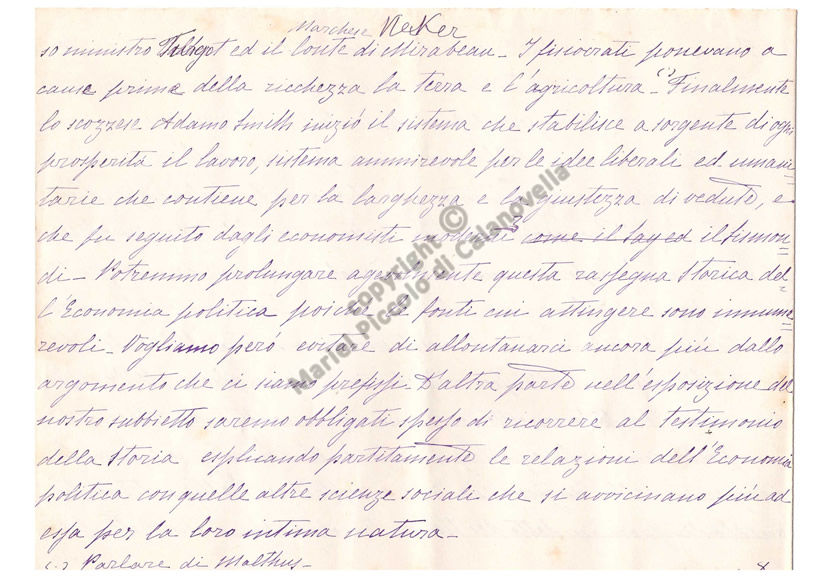 Marchese Neker
so ministro Turgot ed il Conte di Mirabeau - I fisiocrati ponevano a
cause prime della ricchezza la terra e l'agricoltura - (-) Finalmente
lo scozzese Adamo Smith iniziò il sistema che stabilisce a sorgente di ogni
prosperità il lavoro, sistema ammirevole per le idee liberali ed umani=
tarie che contiene per la larghezza e la giustezza di vedute, e
che fu seguito dagli economisti moderni come il Say ed il Sismon=
di - Potremmo prolungare agevolmente questa rassegna storica del=
l'Economia politica poichè le fonti cui attingere sono innume=
revoli - Vogliamo però evitare di allontanarci ancora più dallo
argomento che ci siamo prefissi - D'altra parte nell'esposizione del
nostro subbietto saremo obbligati spesso di ricorrere al testimonio
della Storia esplicando partitamente le relazioni dell'Economia
politica con quelle altre scienze sociali che si avvicinano più ad
essa per la loro intima natura -
(-) Parlare di Malthus -
copyright ©
Mariel Piccolo di Calanovella